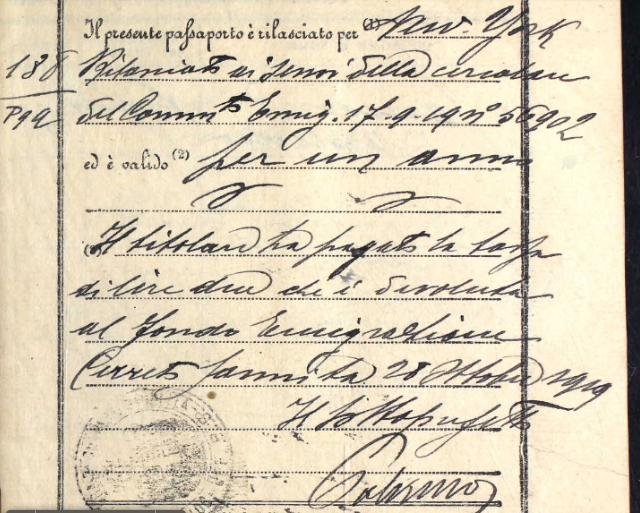 Il presente passaporto è rilasciato per (1) New-York
138
Rilasciato ai sensi della circolare
P99
del Comm.to Emig. 17-9-19 n° 56902
ed è valido (2) per un anno
Il titolare ha pagato la tassa
di lire due che è devoluta
al Fondo Emigrazione
Cerreto Sannita 28 Ottobre 1919
Il Sottoprefetto